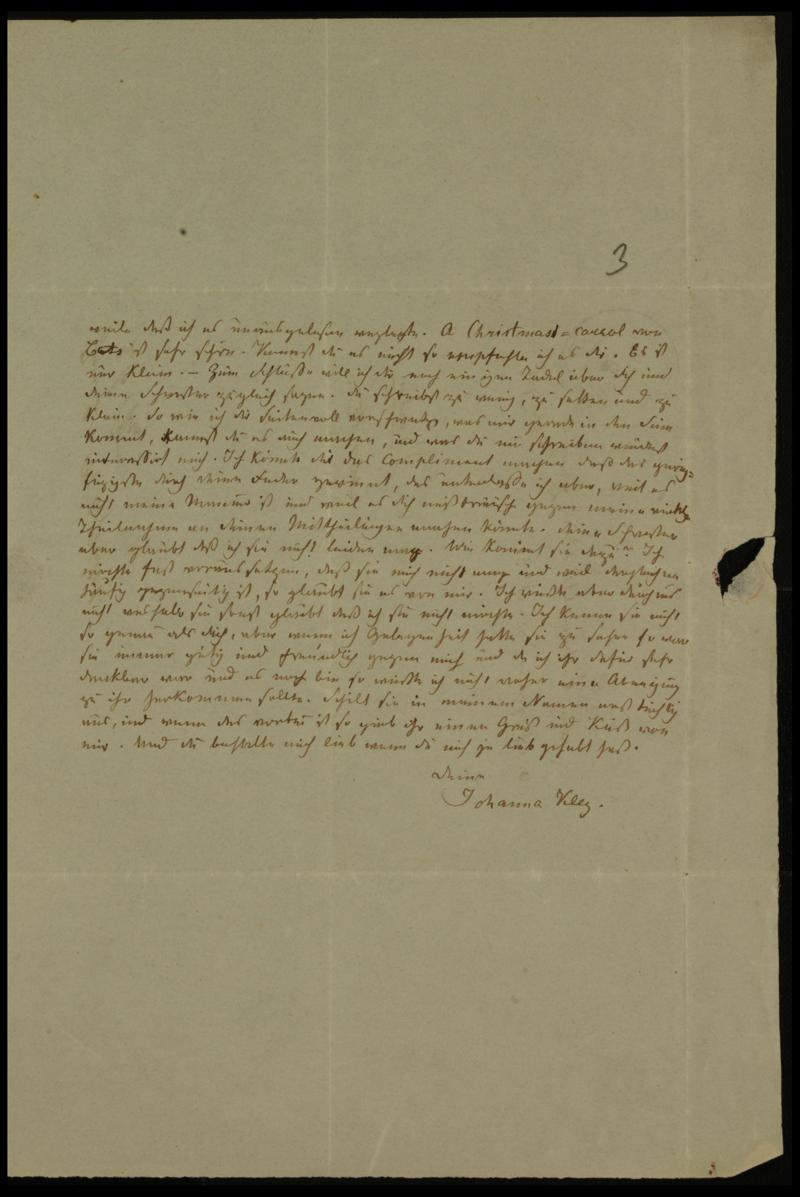 3
weile daß ich es unausgelesen weglegte. A Christmas=carrol von
ist sehr schön. Kennst du es nicht so empfehle ich es dir. Es ist
nur klein. — Zum Schlusse will ich dir noch einigen Tadel über dich und
deine Schwester zugleich sagen. du schreibst zu wenig, zu selten und zu
klein. So wie ich dir Seitenvoll vorschwatze, was mir gerade in den Sinn
kommt, kannst du es auch machen, und was du nur schreiben würdest
interessirt mich. Ich könnte dir das Compliment machen daß das gering=
fügigste durch deine Feder gewinnt, das unterlasse ich aber, weil es
nicht meine Manier ist und weil es dich mißtrauisch gegen meine
Theilnahme an deinen Mittheilungen machen könnte. deine Schwester
aber glaubt daß ich sie nicht leiden mag. Wie kommt sie dazu? Ich
möchte fast voraussetzen, daß sie mich nicht mag und weil dergleichen
häufig gegenseitig ist, so glaubt sie es von mir. Ich wüßte aber durchaus
nicht weshalb sie sonst glaubt daß ich sie nicht möchte. Ich kenne sie nicht
so genau als dich, aber wenn ich Gelegenheit hatte sie zu sehen so war
sie immer gütig und freundlich gegen mich und da ich ihr dafür sehr
dankbar war und es noch bin so wüßte ich nicht woher eine Abneigung
zu ihr herkommen sollte. Schilt sie in meinem Namen erst tüchtig
aus, und wenn das vorbei ist so gieb ihr einen Gruß und Kuß von
mir. Und du behalte mich lieb wenn du mich je lieb gehabt hast.
deine
Johanna Kley.